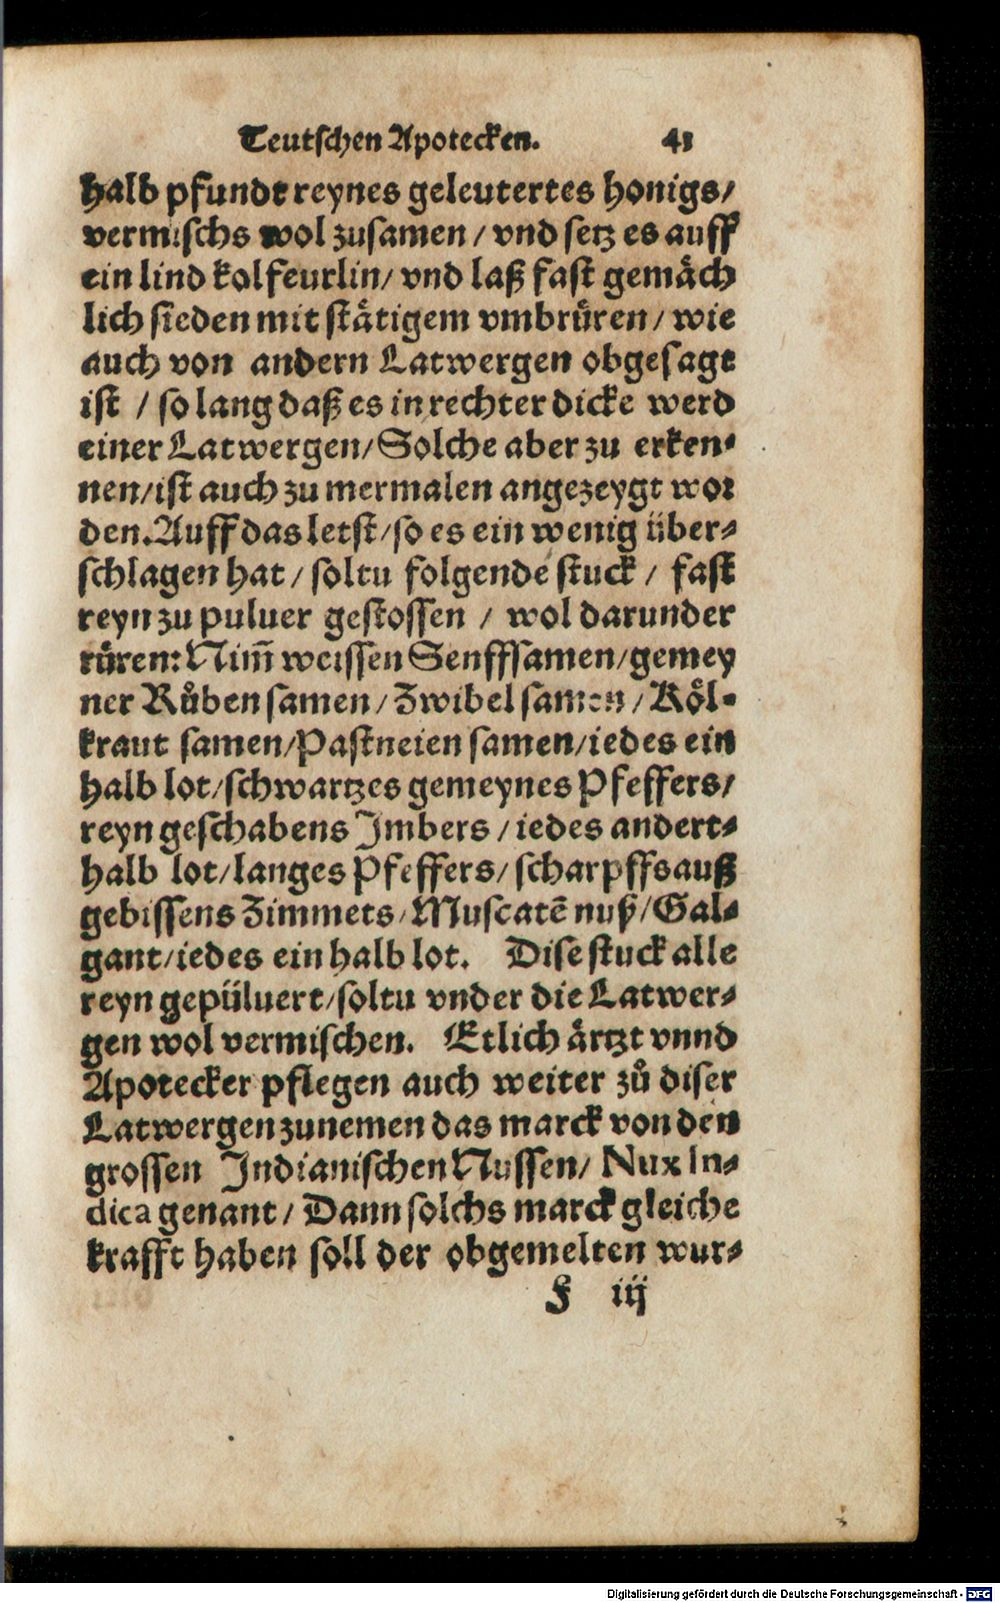 Teutschen Apotecken. 41
halb pfundt reynes geleutertes honigs/
vermischs wol zusamen / vnd setz es auff
ein lind kolfeurlin/ vnd laß fast gemåch
lich sieden mit ståtigem vmbrůren / wie
auch von andern Latwergen obgesagt
ist / so lang daß es in rechter dicke werd
einer Latwergen/Solche aber zu erken-
nen/ist auch zu mermalen angezeygt wor
den. Auff das letst/so es ein wenig über-
schlagen hat / soltu folgende stuck / fast
reyn zu puluer gestossen / wol darunder
růren: Nim̃ weissen Senffsamen/gemey
ner Růben samen / Zwibel samen / Köl-
kraut samen/Pastneien samen/iedes ein
halb lot/schwartzes gemeynes Pfeffers/
reyn geschabens Imbers / iedes andert-
halb lot/langes Pfeffers/scharpffs auß
gebissens Zimmets/Muscatē nuß/Gal-
gant/iedes ein halb lot. Dise stuck alle
reyn gepüluert/soltu vnder die Latwer-
gen wol vermischen. Etlich ärtzt vnnd
Apotecker pflegen auch weiter zů diser
Latwergen zunemen das marck von den
grossen Indianischen Nussen/ Nux In-
dica genant / Dann solchs marck gleiche
krafft haben soll der obgemelten wur-
F iij
Digitalisierung gefördert durch die Deutsche Forschungsgemeinschaft - DFG